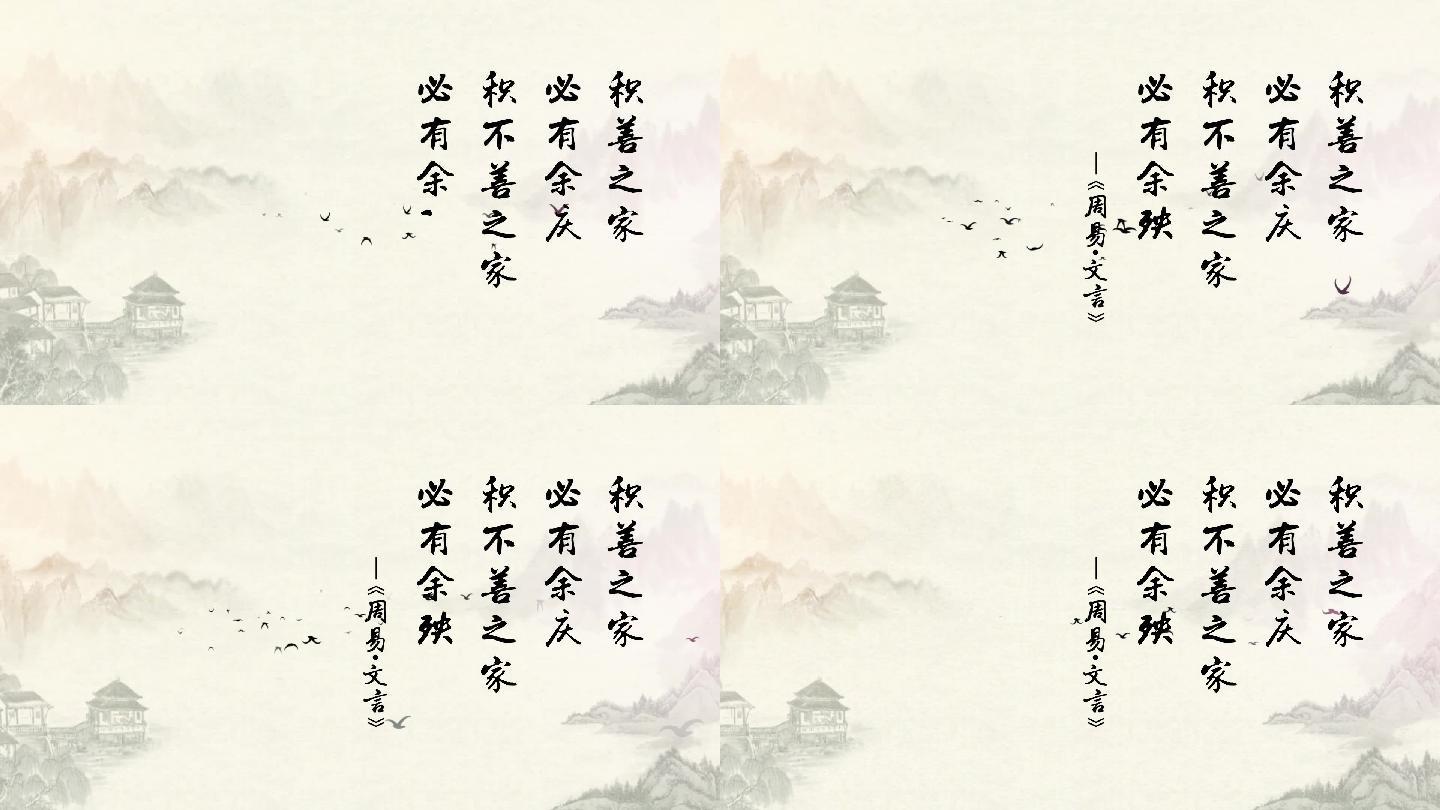 积善之家
必有余庆
积不善之家
必有余
积善之家
必有余庆
积不善之家
必有余殃
—《周易·文言》
积善之家
必有余庆
积不善之家
必有余殃
—《周易·文言》
积善之家
必有余庆
积不善之家
必有余殃
—《周易·文言》